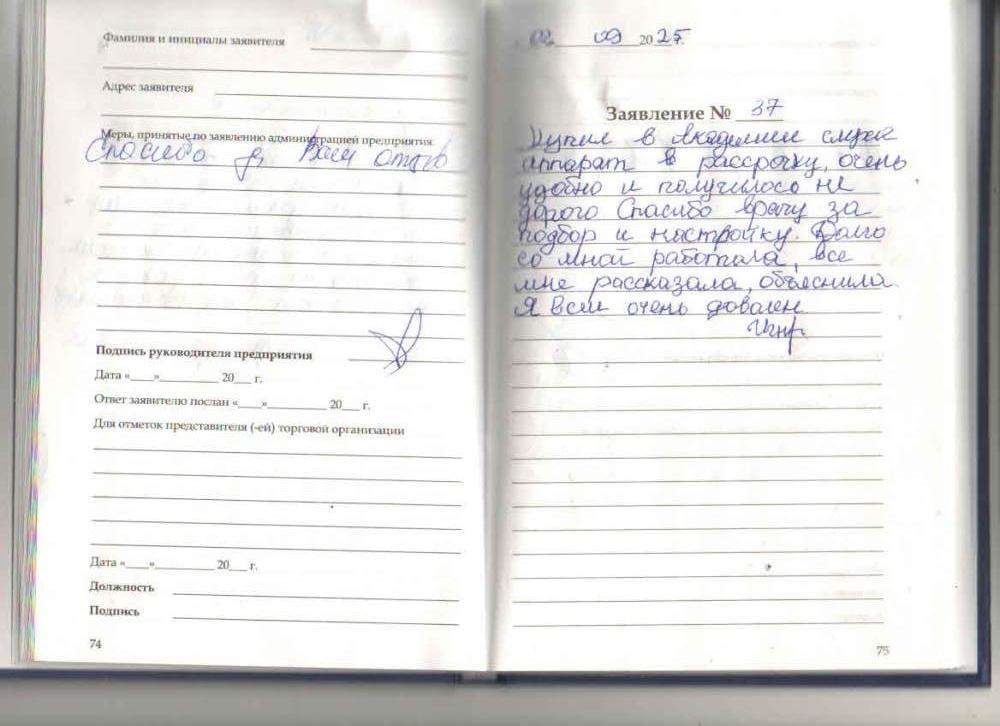 Фамилия и инициалы заявителя
Адрес заявителя
Меры, принятые по заявлению администрацией предприятия
Спасибо за Ваш отзыв
Подпись руководителя предприятия
Дата «____»__________ 20___ г.
Ответ заявителю послан «____»__________ 20___ г.
Для отметок представителя (-ей) торговой организации
Дата «____»__________ 20___ г.
Должность
Подпись
74
09 2025
Заявление № 37
Купил в Академии слуха
аппарат в рассрочку, очень
удобно и получилось не
дорого Спасибо врачу за
подбор и настройку. Долго
со мной работала, все
мне рассказала, объяснила.
Я всем очень доволен
75